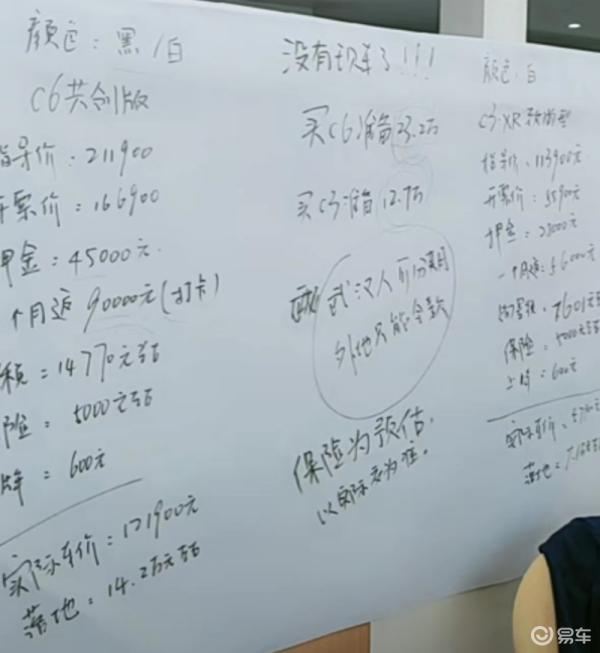 颜色：黑/白
C6共创版
指导价：211900
开票价：166900
押金：45000元
个月返90000元(打卡)
税＝14770元左右
险＝5000元左右
牌＝600元
实际车价：121900元
落地：14.2万元左右
没有现车了！！！
买C6准备23.2万
买C3准备12.7万
武汉人可分期
外地只能全款
保险为预估.
以实际为准。
颜色：白
C3-XR
指导价：113900元
开票价：
押金：
一个月返：56000元
7601元
保险：5000元左右
上牌：600元
实际车价：
落地：
易车